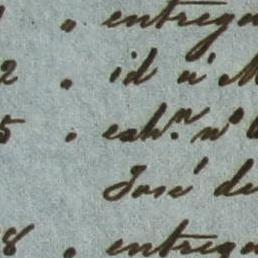 . entrega
2 . id a M
5 . cah.ⁿ nº
José de
8 . entrega